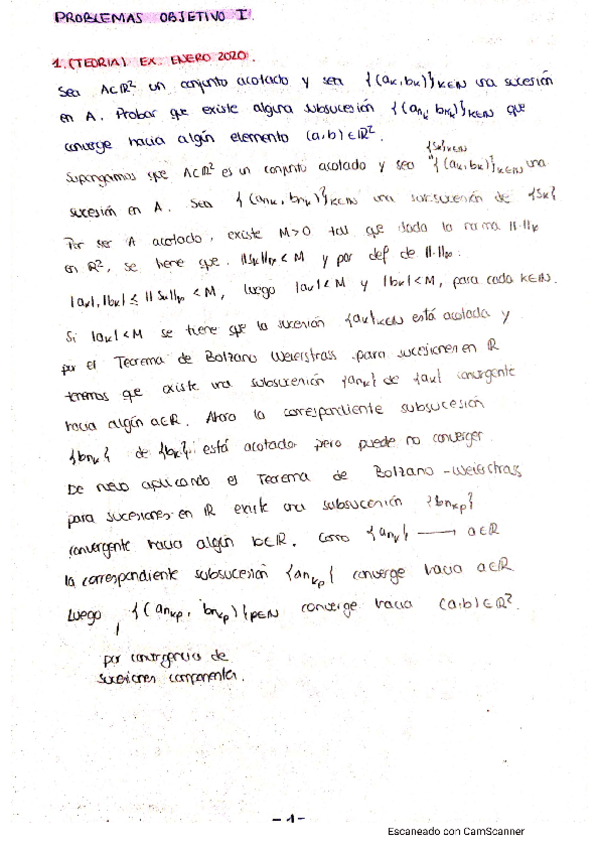 PROBLEMAS OBJETIVO I.
1. (TEORIA) EX. ENERO 2020.
Sea A⊂ℝ² un conjunto acotado y sea {(aₖ, bₖ)}ₖ∈ℕ una sucesión
en A. Probar que existe alguna subsucesión {(aₙₖ, bₙₖ)}ₖ∈ℕ que
converge hacia algún elemento (a,b)∈ℝ².
{Sₖ}ₖ∈ℕ
Supongamos que A⊂ℝ² es un conjunto acotado y sea "{(aₖ, bₖ)}ₖ∈ℕ una
sucesión en A. Sea {(aₙₖ, bₙₖ)}ₖ∈ℕ una subsucesión de {Sₖ}
Por ser A acotado, existe M>0 tal que dada la norma ||·||∞
en ℝ², se tiene que ||Sₖ||∞ < M y por def de ||·||∞:
|aₖ|, |bₖ| ≤ ||Sₖ||∞ < M, luego |aₖ| < M y |bₖ| < M, para cada k∈ℕ.
Si |aₖ| < M se tiene que la sucesión {aₖ}ₖ∈ℕ está acotada y
por el Teorema de Bolzano Weierstrass para sucesiones en ℝ
tenemos que existe una subsucesión {aₙₖ} de {aₖ} convergente
hacia algún a∈ℝ. Ahora la correspondiente subsucesión
{bₙₖ} de {bₖ} está acotada pero puede no converger.
De nuevo aplicando el Teorema de Bolzano-Weierstrass
para sucesiones en ℝ existe una subsucesión {bₙₖₚ}
convergente hacia algún b∈ℝ. Como {aₙₖ} ⟶ a∈ℝ
la correspondiente subsucesión {aₙₖₚ} converge hacia a∈ℝ
Luego, {(aₙₖₚ, bₙₖₚ)}ₚ∈ℕ converge hacia (a,b)∈ℝ².
por convergencia de
sucesiones componentes.
-1-
Escaneado con CamScanner